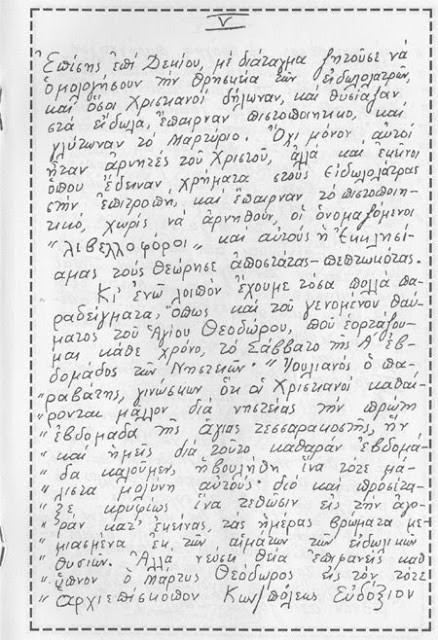 V
Ἐπίσης ἐπί Δεκίου, μέ διάταγμα ζητοῦσε νά
ὁμολογήσουν τήν θρησκεία τῶν εἰδωλολατρῶν,
καί ὅσοι Χριστιανοί δήλωναν, καί θυσίαζαν
στά εἴδωλα, ἔπαιρναν πιστοποιητικό, καί
γλύτωναν τό Μαρτύριο. Ὄχι μόνον αὐτοί
ἦταν ἀρνητές τοῦ Χριστοῦ, ἀλλά καί ἐκεῖνοι
ὅπου ἔδειναν χρήματα στούς Εἰδωλολάτρας
στήν ἐπιτροπή, καί ἔπαιρναν τό πιστοποιη-
τικό, χωρίς νά ἀρνηθοῦν, οἱ ὀνομαζόμενοι
"λιβελλοφόροι" καί αὐτούς ἡ Ἐκκλησί-
α μας τούς θεώρησε ἀποστάτας-πεπτωκότας.
Κι' ἐνῶ λοιπόν ἔχουμε τόσα πολλά πα-
ραδείγματα, ὅπως καί τοῦ γενομένου θαύ-
ματος τοῦ Ἁγίου Θεοδώρου, πού ἑορτάζου-
με κάθε χρόνο, τό Σάββατο τῆς Α' ἑβ-
δομάδος τῶν Νηστειῶν. "Ἰουλιανός ὁ πα-
ραβάτης, γινώσκων ὅτι οἱ Χριστιανοί καθαί-
ρονται μᾶλλον διά νηστείας τήν πρώτη
" ἑβδομάδα τῆς ἁγίας τεσσαρακοστῆς, ἥν
" καί ἡμεῖς διά τοῦτο καθαράν ἑβδομά-
" δα καλοῦμεν, ἠβουλήθη ἵνα τότε μά-
" λιστα μολύνῃ αὐτούς· διό καί προσέτα-
" ξε κρυφίως ἵνα τεθῶσιν εἰς τήν ἀγο-
" ράν κατ' ἐκείνας τάς ἡμέρας βρώματα με-
" μιασμένα ἐκ τῶν αἱμάτων τῶν εἰδωλικῶν
" θυσιῶν. Ἀλλά νεύσει θείᾳ ἐπιφανείς καθ'
" ὕπνον ὁ Μάρτυς Θεόδωρος εἰς τόν τότε
" ἀρχιεπίσκοπον Κων/πόλεως Εὐδόξιον